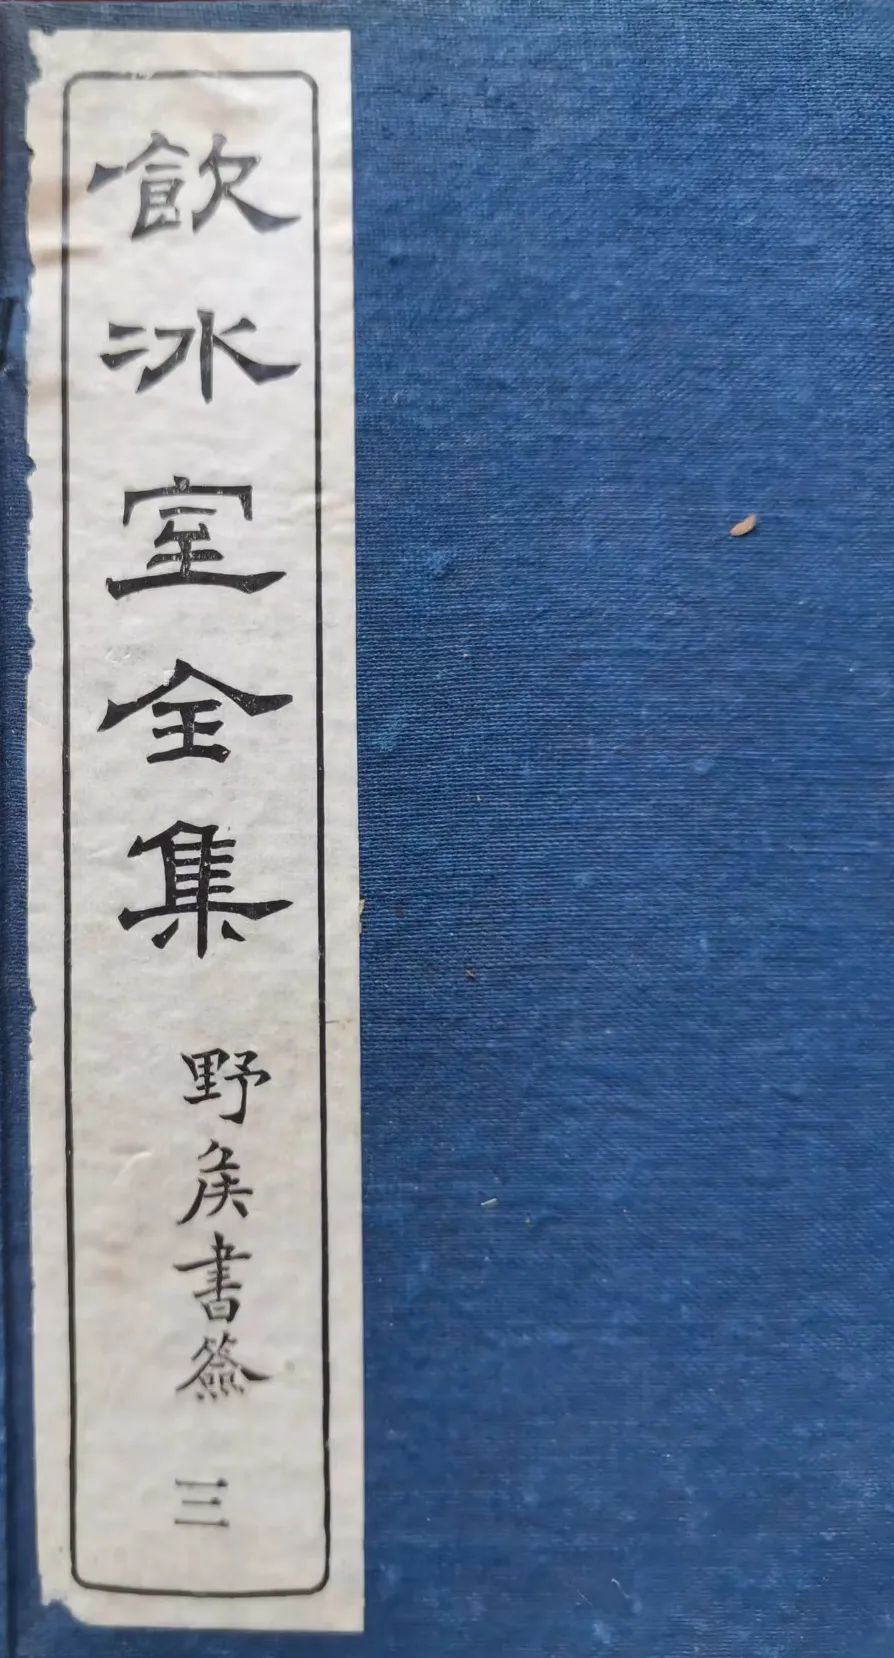 飲冰室全集
野侯書簽
三